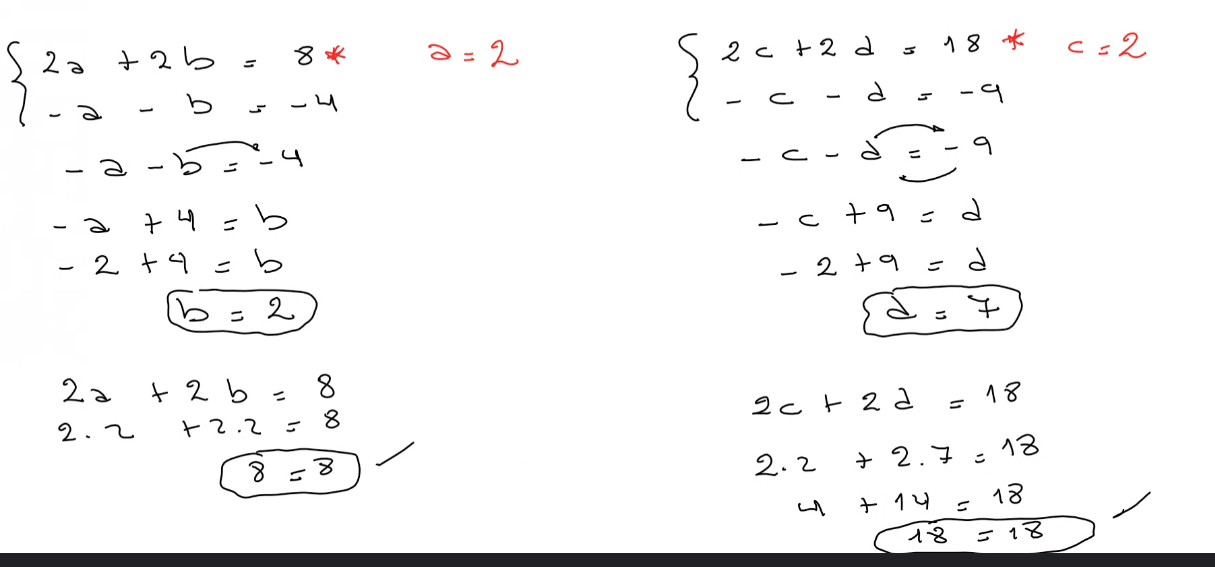 2a + 2b = 8* a = 2
-a - b = -4
-a - b = -4
-a + 4 = b
-2 + 4 = b
b = 2
2a + 2b = 8
2.2 + 2.2 = 8
8 = 8 ✓
2c + 2d = 18* c = 2
-c - d = -9
-c - d = -9
-c + 9 = d
-2 + 9 = d
d = 7
2c + 2d = 18
2.2 + 2.7 = 18
4 + 14 = 18
18 = 18 ✓